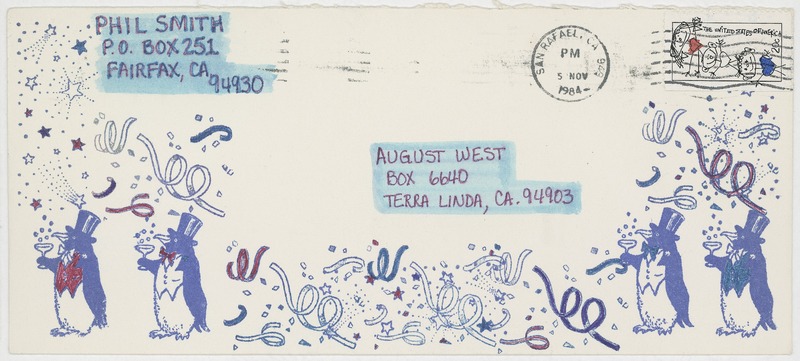 PHIL SMITH
P.O. BOX 251
FAIRFAX, CA
94930
SAN RAFAEL, CA
PM
5 NOV
1984
THE UNITED STATES OF AMERICA
20c
AUGUST WEST
BOX 6640
TERRA LINDA, CA. 94903